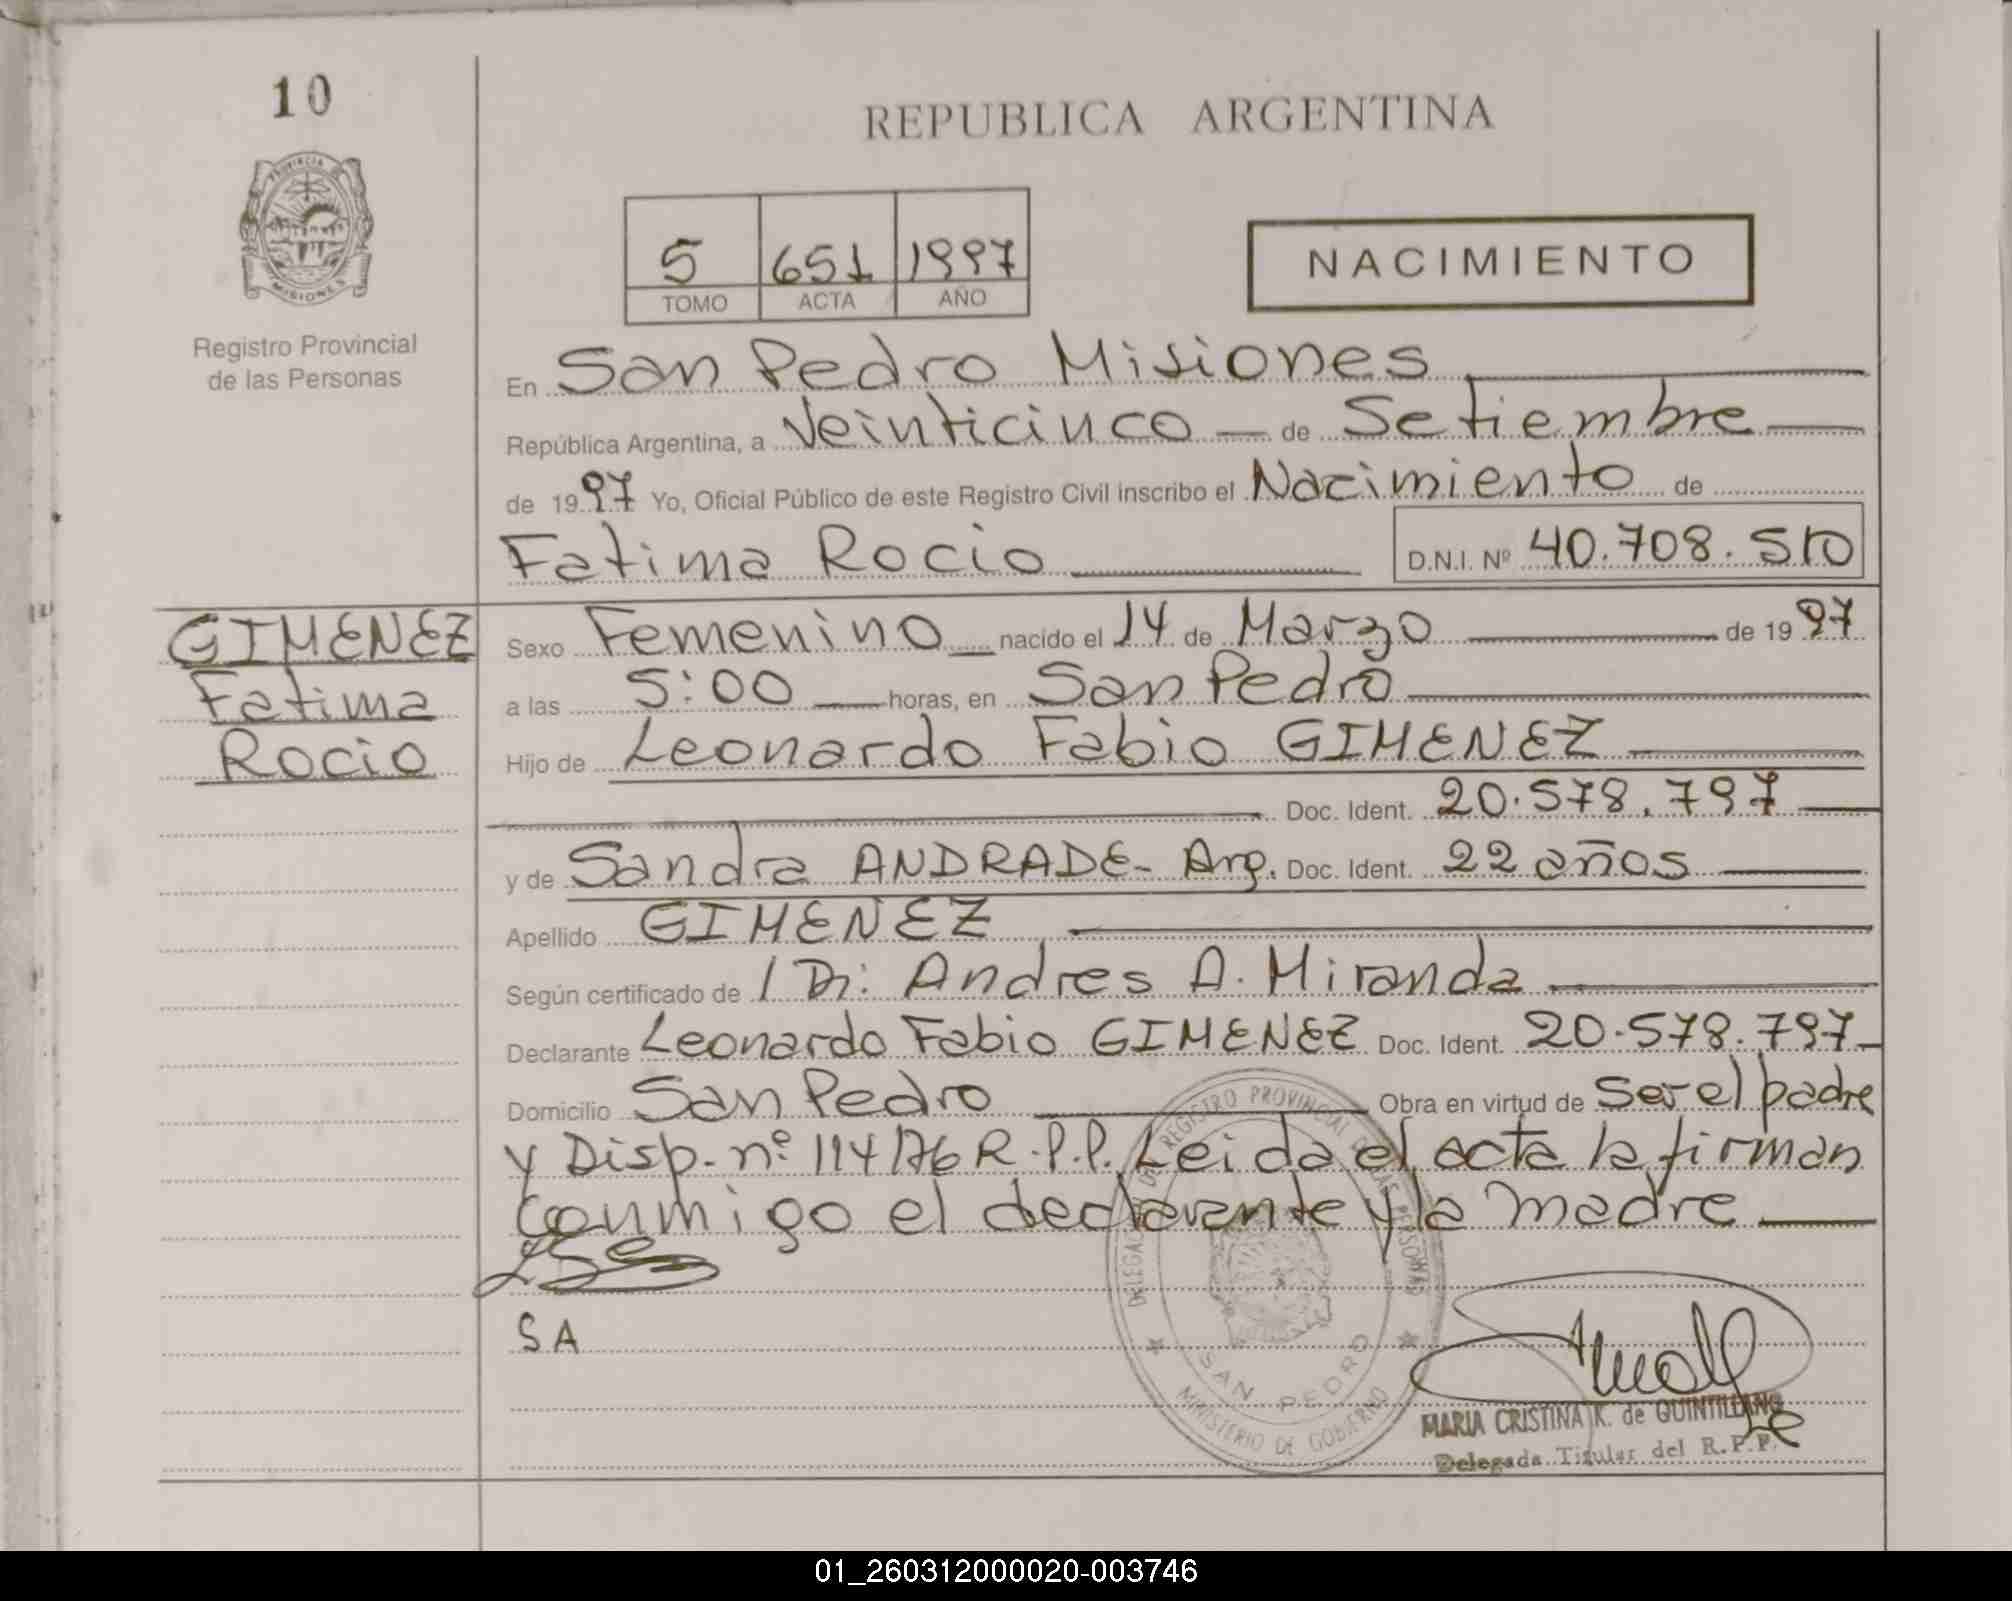 10
REPUBLICA ARGENTINA
PROVINCIA DE
MISIONES
Registro Provincial
de las Personas
5 651 1997
TOMO ACTA AÑO
NACIMIENTO
En San Pedro Misiones
República Argentina, a Veinticinco — de Setiembre
de 1997 Yo, Oficial Público de este Registro Civil inscribo el Nacimiento de
Fatima Rocio D.N.I. Nº 40.708.510
GIMENEZ
Fatima
Rocio
Sexo Femenino nacido el 14 de Marzo de 1997
a las 5:00 horas, en San Pedro
Hijo de Leonardo Fabio GIMENEZ
Doc. Ident. 20.578.797
y de Sandra ANDRADE- Arg. Doc. Ident. 22 años
Apellido GIMENEZ
Según certificado de / Dr: Andres A. Miranda
Declarante Leonardo Fabio GIMENEZ Doc. Ident. 20.578.797
Domicilio San Pedro Obra en virtud de Ser el padre
y Disp. nº 114/76 R.P.P. Leida el acta la firman
conmigo el declarante y la madre
S A
DELEGACION DEL REGISTRO PROVINCIAL DE LAS PERSONAS
SAN PEDRO
MINISTERIO DE GOBIERNO
MARIA CRISTINA K. de QUINTILLANO
Delegada Titular del R.P.P.
01_260312000020-003746